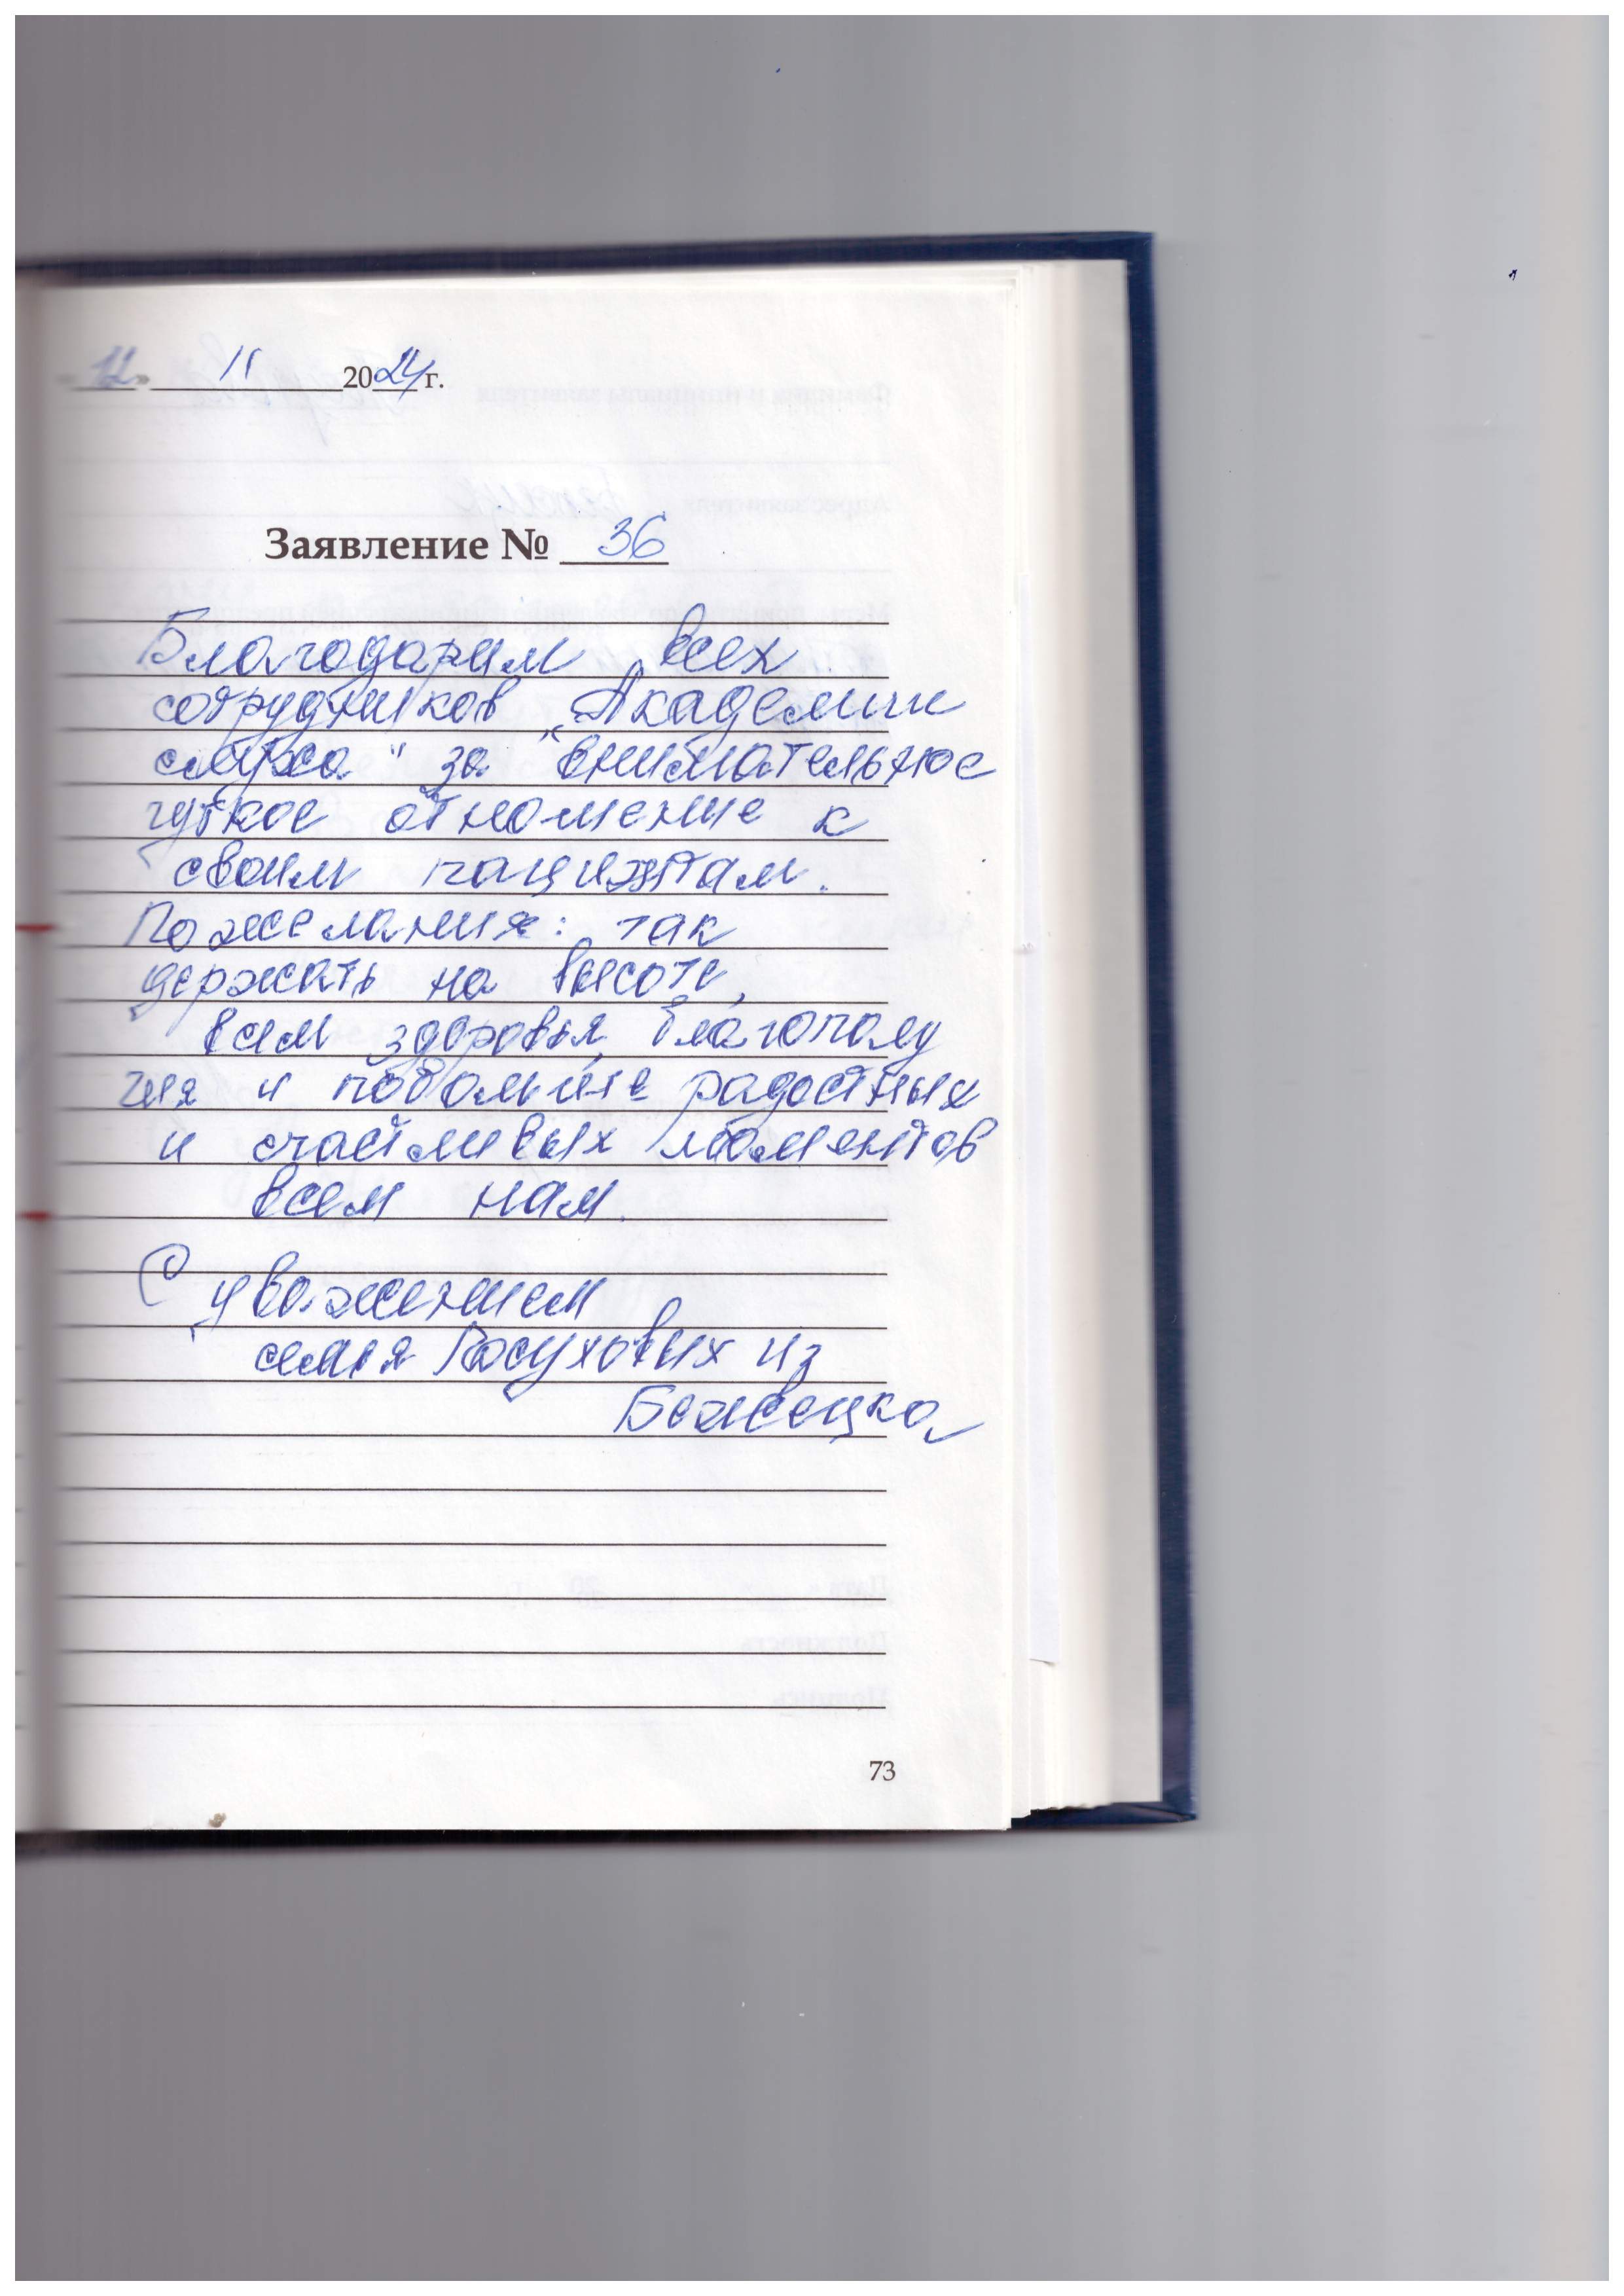 «12» 11 2024 г.
Заявление № 36
Благодарим всех
сотрудников „Академии
слуха" за внимательное
чуткое отношение к
своим пациентам.
Пожелания: так
держать на высоте,
всем здоровья, благополу
чия и побольше радостных
и счастливых моментов
всем нам.
С уважением
семья Посуховых из
Бежецка
73